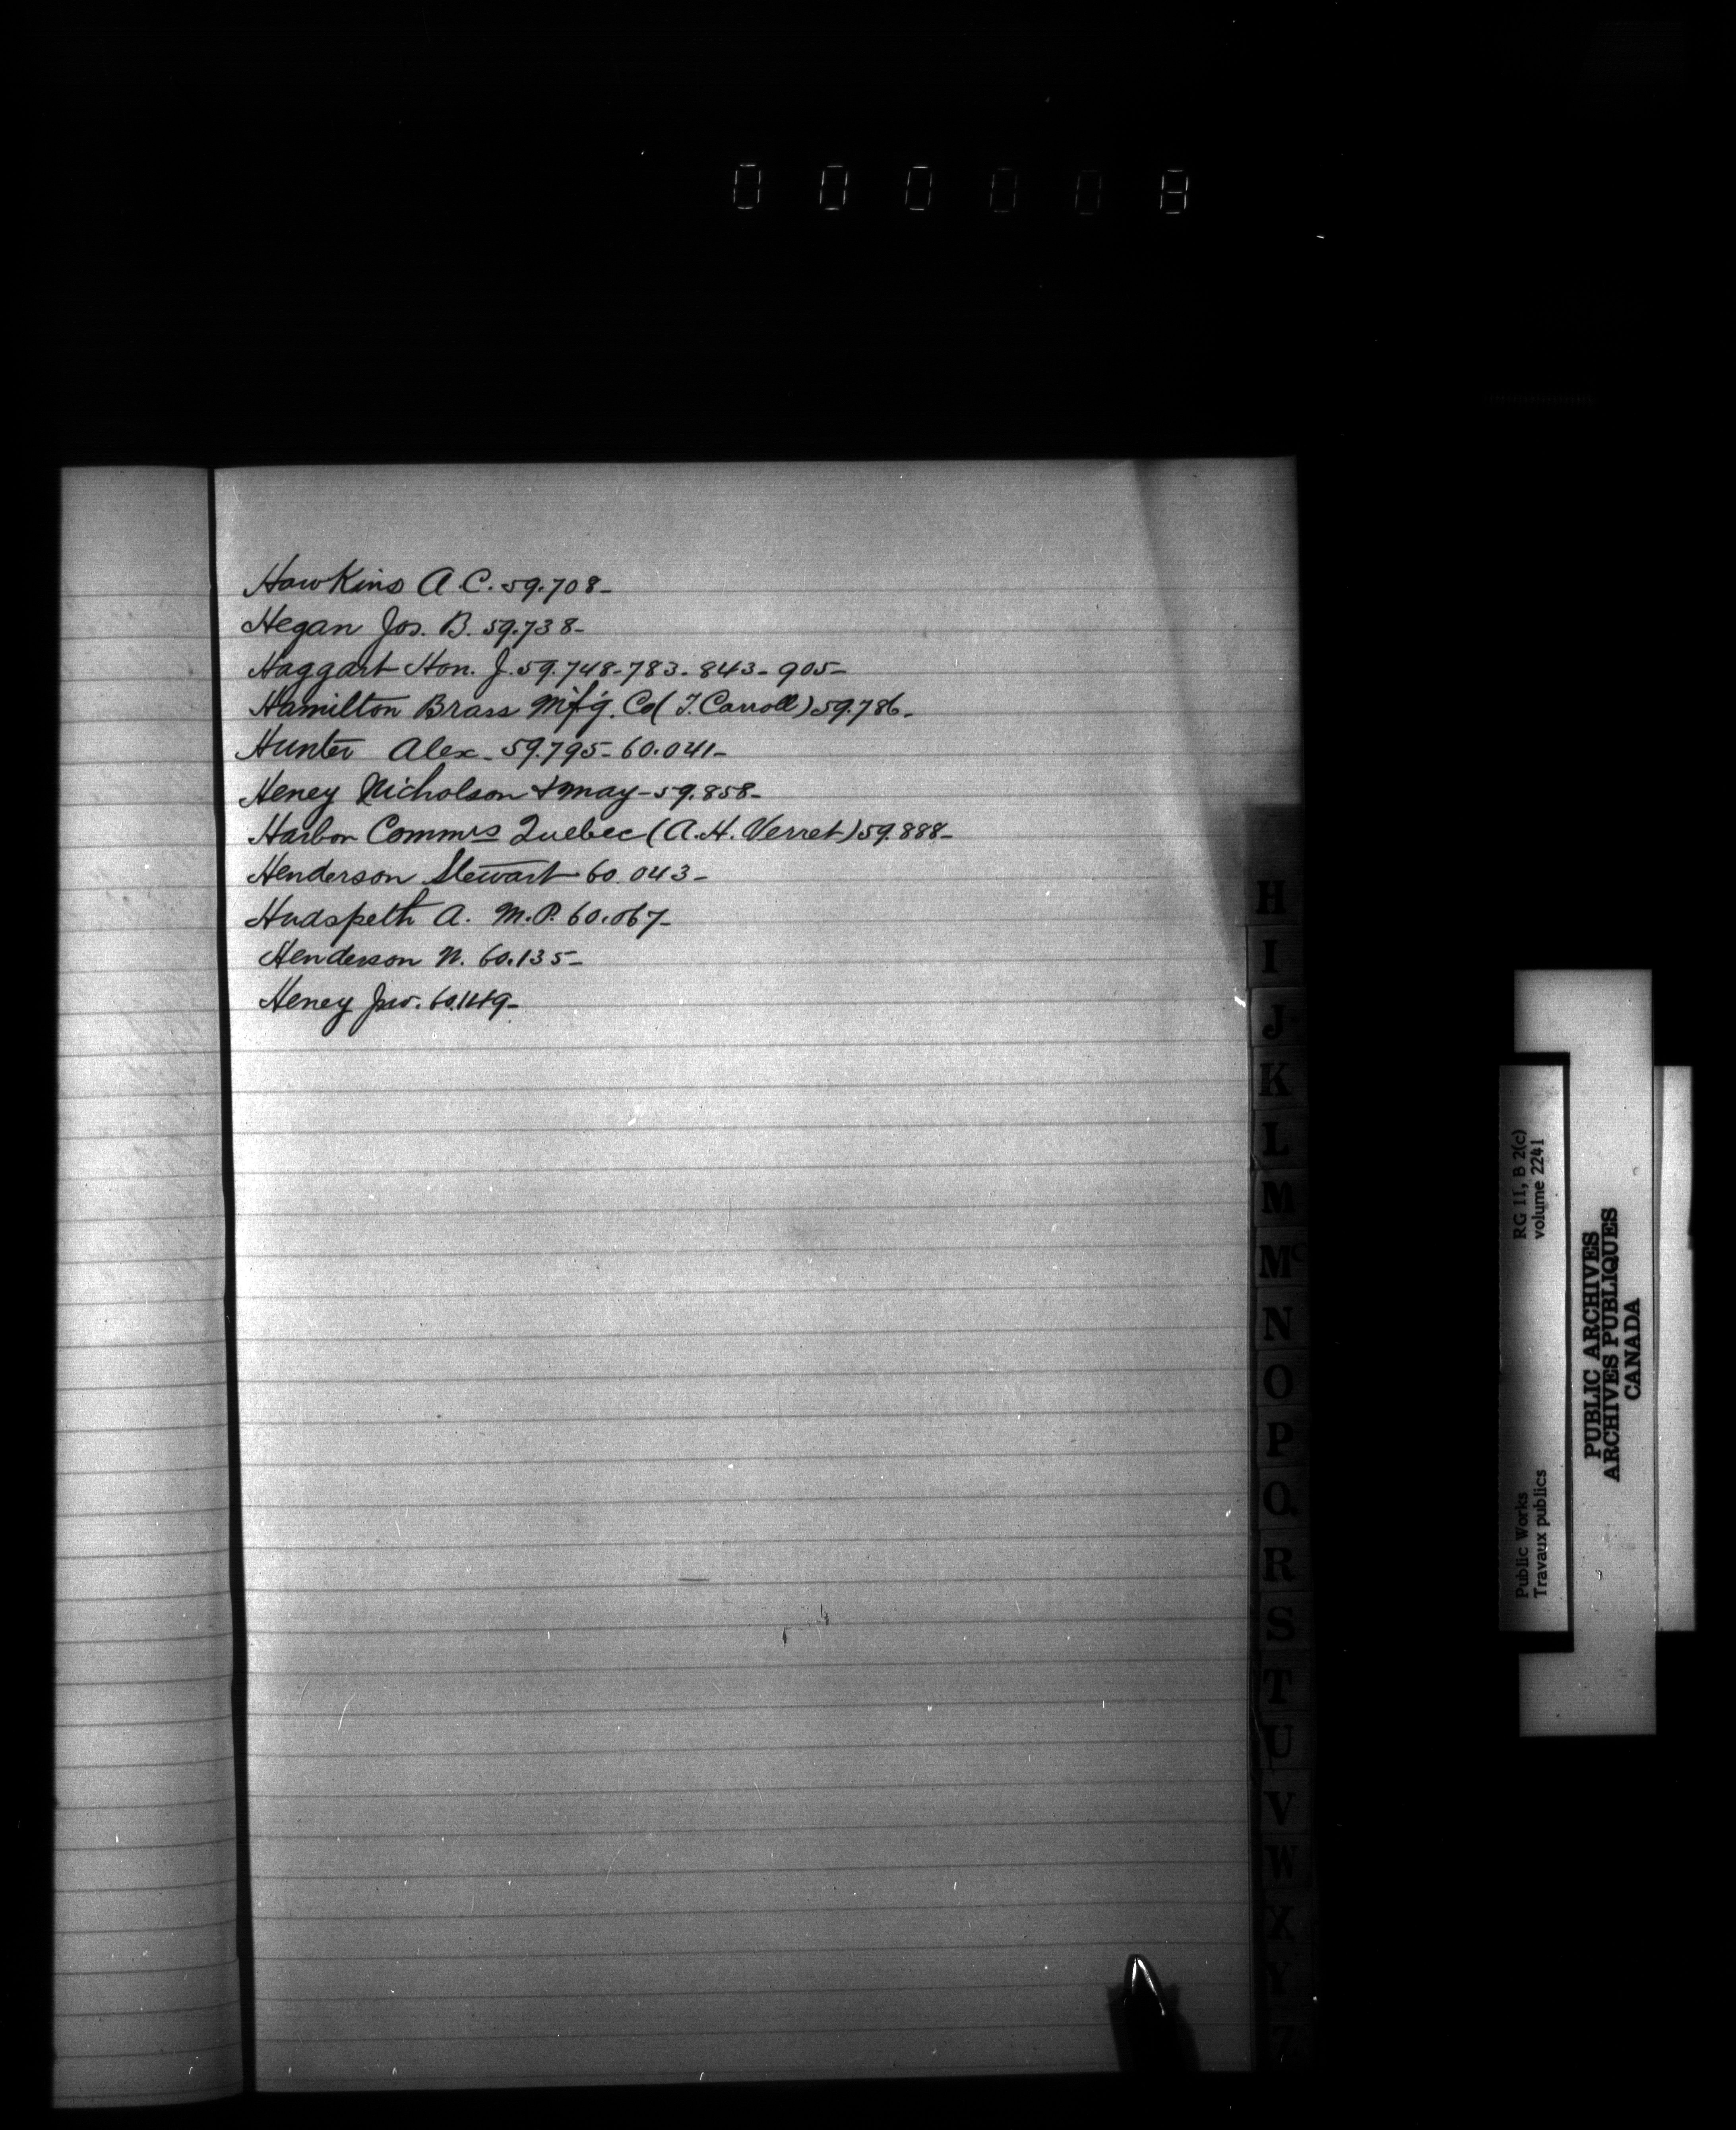 000008
Hawkins A.C. 59.708-
Hegan Jos. B. 59.738-
Haggart Hon. J. 59.748-783-843-905-
Hamilton Brass M'f'g. Co (T. Carroll) 59.786-
Hunter Alex- 59.795-60.041-
Heney Nicholson & May-59.858-
Harbor Commrs Quebec (A.H. Verret) 59.888-
Henderson Stewart 60.043-
Hudspeth A. M.P. 60.067-
Henderson N. 60.135-
Heney Jno. 60.149-
H
I
J
K
L
M
Mc
N
O
P
Q
R
S
T
U
V
W
X
Y
Z
RG 11, B 2(c)
volume 2241
Public Works
Travaux publics
PUBLIC ARCHIVES
ARCHIVES PUBLIQUES
CANADA